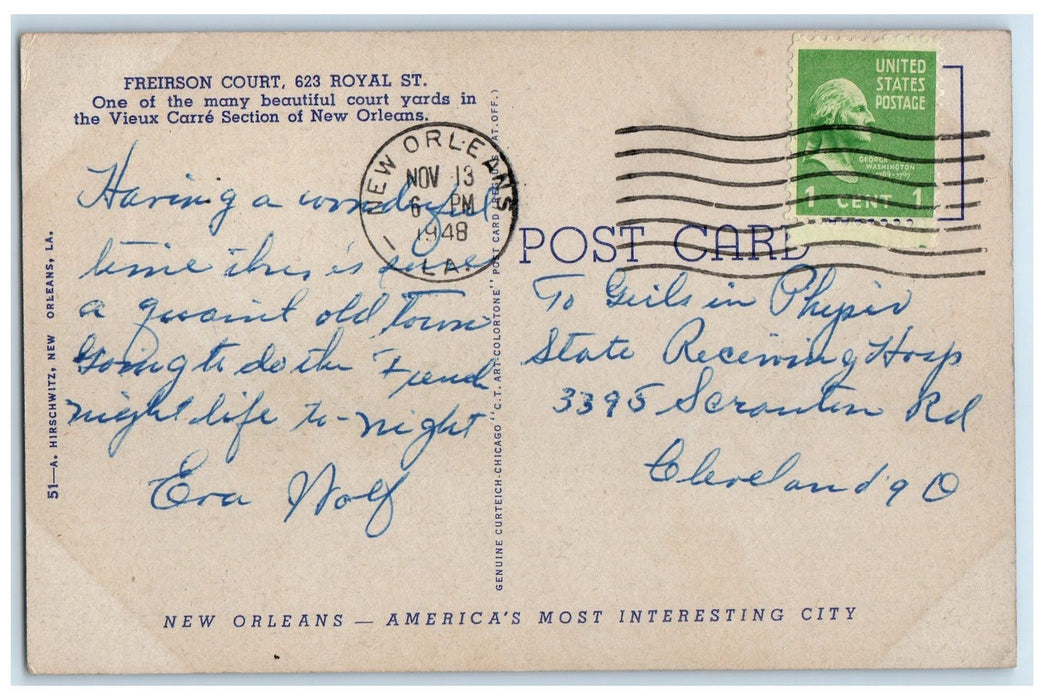 FREIRSON COURT, 623 ROYAL ST.
One of the many beautiful court yards in
the Vieux Carré Section of New Orleans.
Having a wonderful
time this is sure
a quaint old town
Going to do the French
night life to-night
Eva Wolf
51—A. HIRSCHWITZ, NEW ORLEANS, LA.
GENUINE CURTEICH-CHICAGO "C.T. ART-COLORTONE" POST CARD (REG. U.S. PAT. OFF.)
NEW ORLEANS
NOV 13
6 PM
1948
LA.
UNITED
STATES
POSTAGE
GEORGE
WASHINGTON
1789-1797
1 CENT 1
POST CARD
To Girls in Physio
State Receiving Hosp
3395 Scranton Rd
Cleveland 9 O
NEW ORLEANS — AMERICA'S MOST INTERESTING CITY